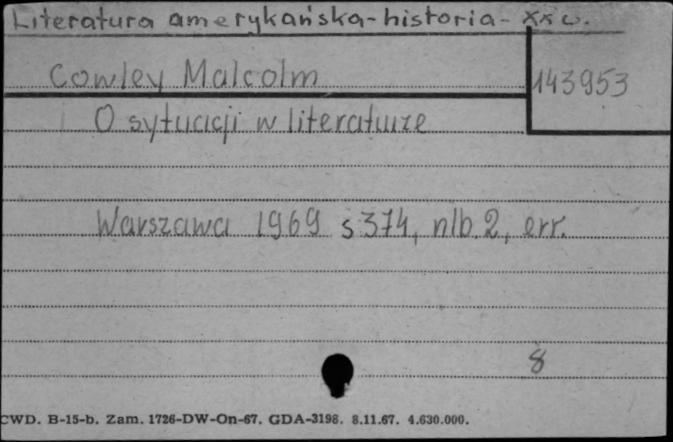 Literatura amerykańska-historia- XX w.
Cowley Malcolm
143953
O sytuacji w literaturze
Warszawa 1969 s 374, nlb. 2, err.
8
CWD. B-15-b. Zam. 1726-DW-On-67. GDA-3198. 8.11.67. 4.630.000.